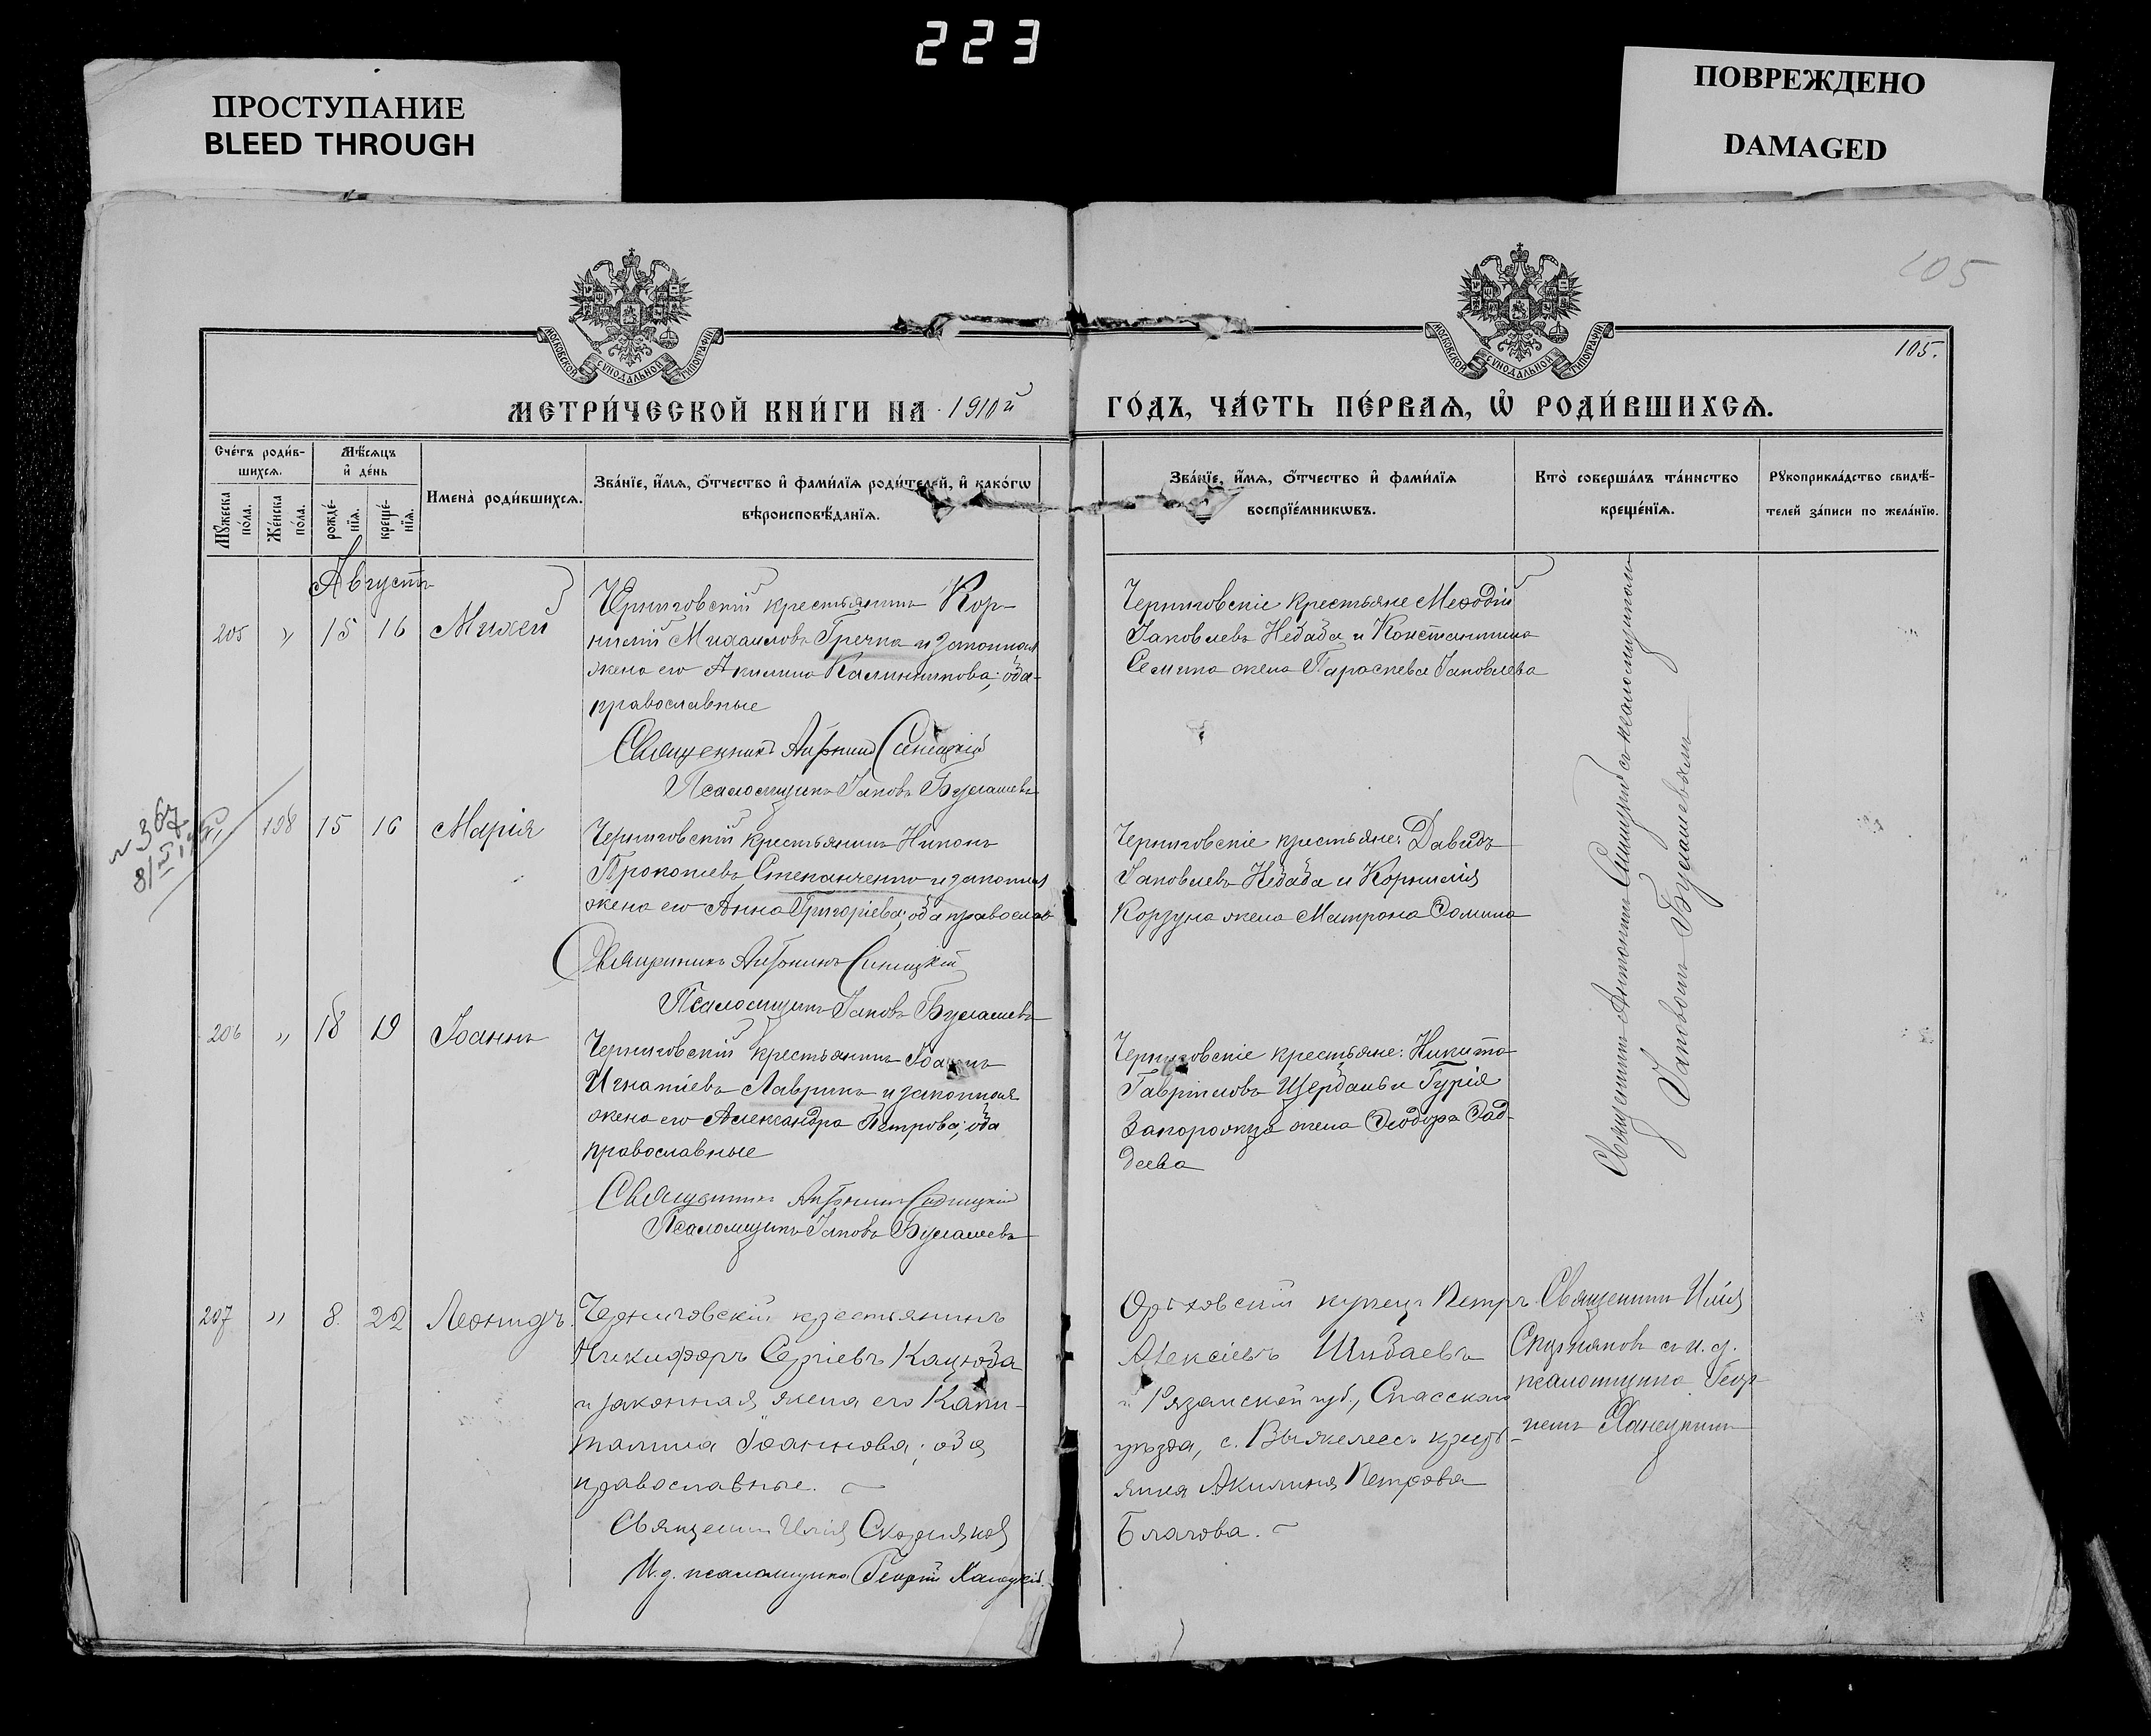 223
ПРОСТУПАНИЕ
BLEED THROUGH
ПОВРЕЖДЕНО
DAMAGED
105
105.
МОСКОВСКОЙ СУНОДАЛЬНОЙ ТИПОГРАФІИ
МОСКОВСКОЙ СУНОДАЛЬНОЙ ТИПОГРАФІИ
МЕТРИ́ЧЕСКОЙ КНИ́ГИ НА 1910й ГО́ДЪ, ЧА́СТЬ ПЕ́РВАѦ, Ѡ҆ РОДИ́ВШИХСѦ.
Сче́тъ роди́в-
шихсѧ.
Мꙋжеска по́ла.
Же́нска по́ла.
Мѣ́сѧцъ
и҆ де́нь
рожде́-
нїѧ.
креще́-
нїѧ.
Имена̀ роди́вшихсѧ.
Зва́нїе, и҆́мѧ, ѻ҆́тчество и҆ фами́лїѧ роди́телей, и҆ како́гѡ
вѣроисповѣ́данїѧ.
Зва́нїе, и҆́мѧ, ѻ҆́тчество и҆ фами́лїѧ
воспрїе́мникѡвъ.
Кто̀ соверша́лъ та́инство
креще́нїѧ.
Рꙋкоприкла́дство свидѣ́-
телей за́писи по жела́нїю.
Августъ
205 " 15 16 Михей
Черниговскій крестьянинъ Кор-
нилій Михаиловъ Гречка и законная
жена его Акилина Калинникова; оба
православные
Священникъ Антоній Синицкій
Псаломщикъ Іаковъ Буслашевъ
Черниговскіе крестьяне Мефодій
Іаковлевъ Небаба и Константина
Семина жена Параскева Іаковлева
Священникъ Антоній Синицкій съ псаломщикомъ
Іаковомъ Буслашевымъ
N 367
198 15 16 Марія
Черниговскій крестьянинъ Никонъ
Прокопіевъ Степанченко и законная
жена его Анна Григоріева; оба православ
Священникъ Антоній Синицкій
Псаломщикъ Іаковъ Буслашевъ
Черниговскіе крестьяне: Давидъ
Іаковлевъ Небаба и Корнилія
Корзуна жена Матрона Домина
206 " 18 19 Іоаннъ
Черниговскій крестьянинъ Іоаннъ
Игнатіевъ Лавринъ и законная
жена его Александра Петрова; оба
православные
Священникъ Антоній Синицкій
Псаломщикъ Іаковъ Буслашевъ
Черниговскіе крестьяне: Никита
Гавріиловъ Щербань и Гурія
Запорожца жена Ѳеодора Ѳад-
деева
207 " 8. 22 Леонидъ.
Черниговскій крестьянинъ
Никифоръ Сергіевъ Кацюба
и законная жена его Капи-
талина Іоаннова; оба
православные.
Священникъ Илія
И.д. псаломщика Георгій Ханецкій.
Орѣховскій купецъ Петръ
Алексіевъ Шибаевъ
и Рязанской губ., Спасскаго
уѣзда, с. Выжелесъ кресть-
янка Акилина Петрова
Благова.
Священникъ Илія
съ и.д.
псаломщика Геор-
гіемъ Ханецкимъ